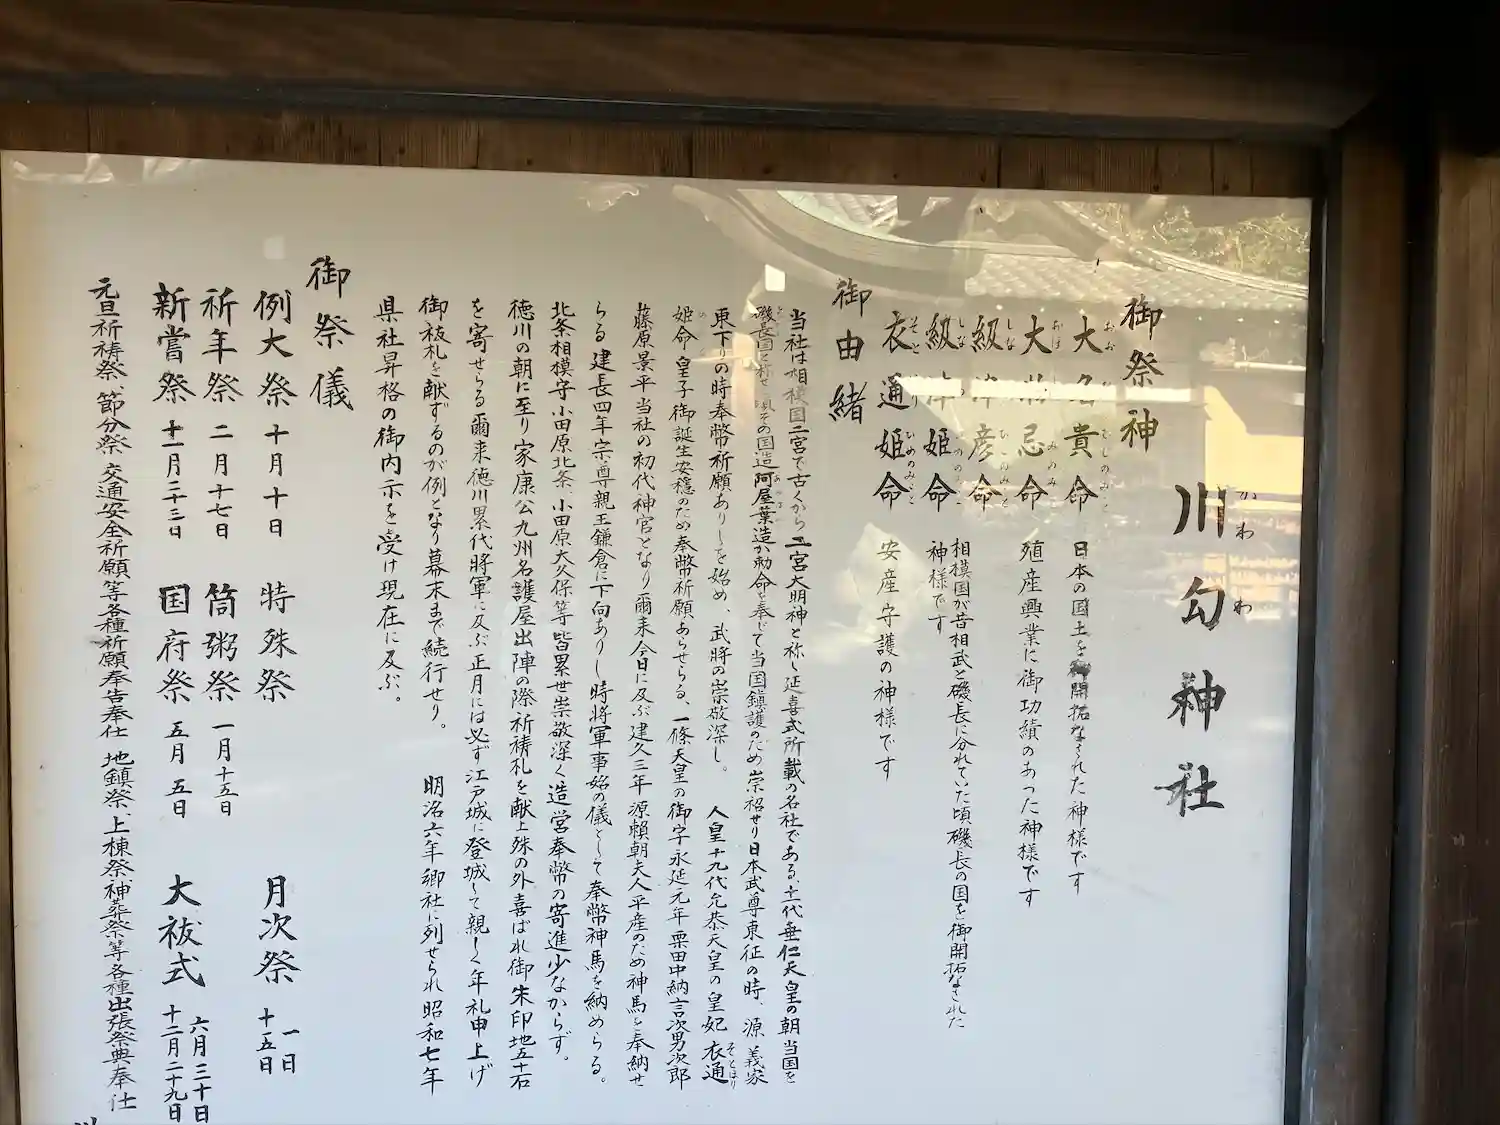 川勾神社
かわわ
御祭神
大名貴命
日本の国土を御開拓なされた神様です
大物忌命
殖産興業に御功績のあった神様です
級津彦命
級津姫命
相模国が昔相武と磯長に分れていた頃磯長の国を御開拓なされた
神様です
衣通姫命
安産守護の神様です
御由緒
当社は相模国二宮で古くから二宮大明神と称し延喜式所載の名社である、十一代垂仁天皇の朝当国を
磯長国と称せし頃その国造阿屋葉造が勅命を奉じて当国鎮護のため崇祀せり日本武尊東征の時、源義家
東下りの時奉幣祈願ありしを始め、武将の崇敬深し。人皇十九代允恭天皇の皇妃衣通
姫命皇子御誕生安穏のため奉幣祈願あらせらる、一條天皇の御字永延元年粟田中納言次男次郎
藤原景平当社の初代神官となり爾来今日に及ぶ建久三年源頼朝夫人平産のため神馬を奉納せ
らる建長四年宗尊親王鎌倉に下向ありし時将軍事始の儀として奉幣神馬を納めらる。
北条相模守小田原北条小田原大久保等皆累世崇敬深く造営奉幣の寄進少なからず。
徳川の朝に至り家康公九州名護屋出陣の際祈祷札を献上殊の外喜ばれ御朱印地五十石
を寄せらる爾来徳川累代将軍に及ぶ正月には必ず江戸城に登城して親しく年礼申上げ
御祓札を献ずるのが例となり幕末まで続行せり。明治六年郷社に列せられ昭和七年
県社昇格の御内示を受け現在に及ぶ。
御祭儀
例大祭 十月十日 特殊祭 月次祭 一日 十五日
祈年祭 二月十七日 筒粥祭 一月十五日
新嘗祭 十一月二十三日 国府祭 五月五日 大祓式 六月三十日 十二月二十九日
元旦祈祷祭、節分祭 交通安全祈願等各種祈願奉告奉仕 地鎮祭、上棟祭、神葬祭等各種出張祭典奉仕